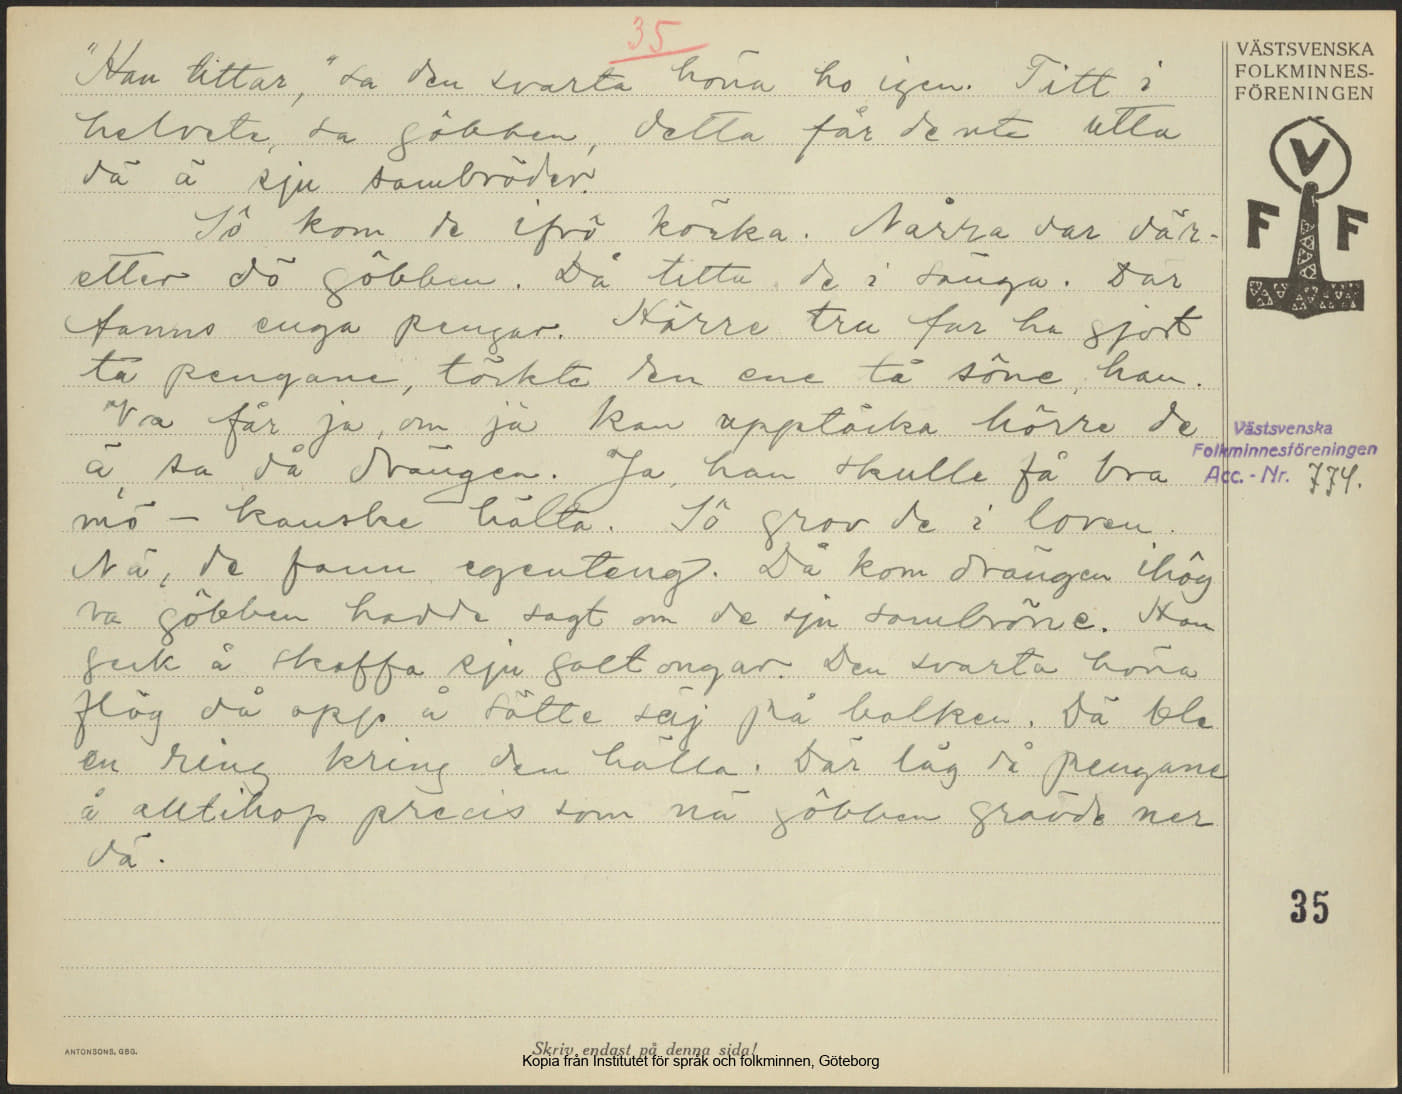 35
"Han tittar," sa den svarta höna ho igen. Titt i
helvete, sa göbben, detta får de nte utta
dä ä sju sambröder.
Sô kom de ifrô körka. Nårra dar där-
etter dö göbben. Då titta de i sänga. Där
fanns enga pengar. Härre tru far ha gjort
tå pengane, törkte den ene tå söne, han.
Va får ja, om jä kan upptäcka hörre de
ä, sa då drängen. Ja, han skulle få bra
mö – kanske hälta. Sô grov de i loven.
Nä, de fann egenteng. Då kom drängen ihôg
va göbben hadde sagt om de sju sambröne. Han
geck å skaffa sju galtongar. Den svarta höna
flög då opp å sätte säj på balken. Dä ble
en ring kring den hälla. Där låg då pengane
å alltihop precis som nä göbben gravde ner
dä.
VÄSTSVENSKA
FOLKMINNES-
FÖRENINGEN
V
F F
Västsvenska
Folkminnesföreningen
Acc. - Nr. 774.
35
ANTONSONS, GBG.
Skriv endast på denna sida!
Kopia från Institutet för språk och folkminnen, Göteborg